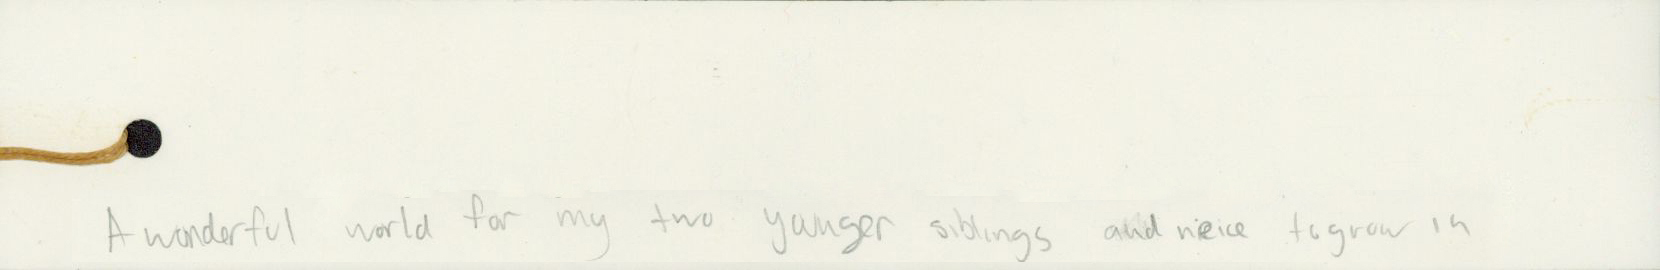 A wonderful world for my two younger siblings and neice to grow in